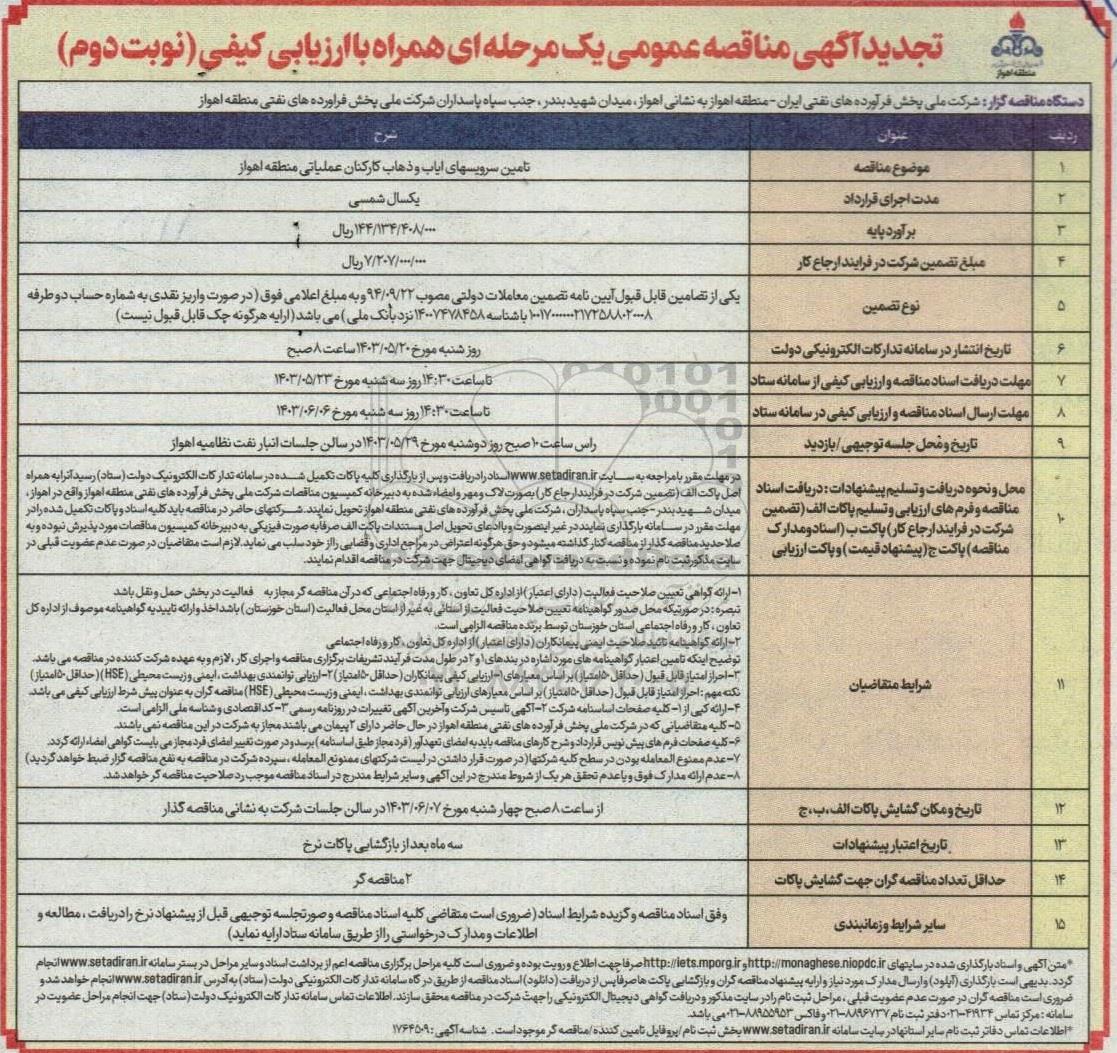 تجدید آگهی مناقصه عمومی یک مرحله ای همراه با ارزیابی کیفی (نوبت دوم)
منطقه اهواز
دستگاه مناقصه گزار: شرکت ملی پخش فرآورده های نفتی ایران - منطقه اهواز به نشانی اهواز، میدان شهید بندر، جنب سپاه پاسداران شرکت ملی پخش فراورده های نفتی منطقه اهواز
ردیف عنوان شرح
۱ موضوع مناقصه تامین سرویسهای ایاب و ذهاب کارکنان عملیاتی منطقه اهواز
۲ مدت اجرای قرارداد یکسال شمسی
۳ برآورد پایه ۱۴۴/۱۳۴/۴۰۸/۰۰۰ ریال
۴ مبلغ تضمین شرکت در فرایند ارجاع کار ۷/۲۰۷/۰۰۰/۰۰۰ ریال
۵ نوع تضمین یکی از تضامین قابل قبول آیین نامه تضمین معاملات دولتی مصوب ۹۴/۰۹/۲۲ و به مبلغ اعلامی فوق (در صورت واریز نقدی به شماره حساب دو طرفه
باشناسه ۱۴۰۰۷۴۷۸۴۵۸ نزد بانک ملی) می باشد (ارایه هرگونه چک قابل قبول نیست)
۶ تاریخ انتشار در سامانه تدارکات الکترونیکی دولت روز شنبه مورخ ۱۴۰۳/۰۵/۲۰ ساعت ۸ صبح
۷ مهلت دریافت اسناد مناقصه و ارزیابی کیفی از سامانه ستاد تا ساعت ۱۴:۳۰ روز سه شنبه مورخ ۱۴۰۳/۰۵/۲۳
۸ مهلت ارسال اسناد مناقصه و ارزیابی کیفی در سامانه ستاد تا ساعت ۱۴:۳۰ روز سه شنبه مورخ ۱۴۰۳/۰۶/۰۶
۹ تاریخ و محل جلسه توجیهی /بازدید راس ساعت ۱۰ صبح روز دوشنبه مورخ ۱۴۰۳/۰۵/۲۹ در سالن جلسات انبار نفت نظامیه اهواز
۱۰ محل و نحوه دریافت و تسلیم پیشنهادات: دریافت اسناد
مناقصه و فرم های ارزیابی و تسلیم پاکات الف (تضمین
شرکت در فرایند ارجاع کار) پاکت ب (اسناد و مدارک
مناقصه) پاکت ج (پیشنهاد قیمت) و پاکت ارزیابی
در مهلت مقرر با مراجعه به سایت www.setadiran.ir اسناد را دریافت و پس از بارگذاری کلیه پاکات تکمیل شده در سامانه تدارکات الکترونیک دولت (ستاد) رسید آنرا به همراه
اصل پاکت الف (تضمین شرکت در فرآیند ارجاع کار) بصورت لاک و مهر و امضاء شده به دبیرخانه کمیسیون مناقصات شرکت ملی پخش فرآورده های نفتی منطقه اهواز واقع در اهواز،
میدان شهید بندر - جنب سپاه پاسداران، شرکت ملی پخش فرآورده های نفتی منطقه اهواز تحویل نمایند. شرکتهای حاضر در مناقصه باید کلیه اسناد و پاکات تکمیل شده را در
مهلت مقرر در سامانه بارگذاری نمایند در غیر اینصورت و یا ادعای تحویل اصل مستندات پاکت الف صرفا به صورت فیزیکی به دبیرخانه کمیسیون مناقصات مورد پذیرش نبوده و به
صلاحدید مناقصه گذار از مناقصه کنار گذاشته میشود و حق هرگونه اعتراض در مراجع اداری و قضایی را از خود سلب می نماید. لازم است متقاضیان در صورت عدم عضویت قبلی در
سایت مذکور ثبت نام نموده و نسبت به دریافت گواهی امضای دیجیتال جهت شرکت در مناقصه اقدام نمایند.
۱۱ شرایط متقاضیان
۱- ارائه گواهی تعیین صلاحیت فعالیت (دارای اعتبار) از اداره کل تعاون، کار و رفاه اجتماعی که در آن مناقصه گر مجاز به فعالیت در بخش حمل و نقل باشد
تبصره: در صورتیکه محل صدور گواهینامه تعیین صلاحیت فعالیت از استانی به غیر از استان محل فعالیت (استان خوزستان) باشد اخذ و ارائه تاییدیه گواهینامه موصوف از اداره کل
تعاون، کار و رفاه اجتماعی استان خوزستان توسط برنده مناقصه الزامی است.
۲- ارائه گواهینامه تائید صلاحیت ایمنی پیمانکاران (دارای اعتبار) از اداره کل تعاون، کار و رفاه اجتماعی
توضیح اینکه تامین اعتبار گواهینامه های مورد اشاره در بندهای ۱ و ۲ در طول مدت فرآیند تشریفات برگزاری مناقصه و اجرای کار، لازم و به عهده شرکت کننده در مناقصه می باشد.
۳- احراز امتیاز قابل قبول (حداقل ۵۰ امتیاز) بر اساس معیارهای ۱- ارزیابی کیفی پیمانکاران (حداقل ۵۰ امتیاز) ۲- ارزیابی توانمندی بهداشت، ایمنی و زیست محیطی (HSE) (حداقل ۵۰ امتیاز)
نکته مهم: احراز امتیاز قابل قبول (حداقل ۵۰ امتیاز) بر اساس معیارهای ارزیابی توانمندی بهداشت، ایمنی و زیست محیطی (HSE) مناقصه گران به عنوان پیش شرط ارزیابی کیفی می باشد.
۴- ارائه کپی از ۱- کلیه صفحات اساسنامه شرکت ۲- آگهی تاسیس شرکت و آخرین آگهی تغییرات در روزنامه رسمی ۳- کد اقتصادی و شناسه ملی الزامی است.
۵- کلیه متقاضیانی که در شرکت ملی پخش فرآورده های نفتی منطقه اهواز در حال حاضر دارای ۲ پیمان می باشند مجاز به شرکت در این مناقصه نمی باشند.
۶- کلیه صفحات فرم های پیش نویس قرارداد و شرح کارهای مناقصه باید به امضای تعهدآور (فرد مجاز طبق اساسنامه) برسد و در صورت تغییر امضای فرد مجاز می بایست گواهی امضاء ارائه گردد.
۷- عدم ممنوع المعامله بودن در سطح کلیه شرکتها (در صورت قرار داشتن در لیست شرکتهای ممنوع المعامله، سپرده شرکت در مناقصه به نفع مناقصه گزار ضبط خواهد گردید)
۸- عدم ارائه مدارک فوق و یا عدم تحقق هر یک از شروط مندرج در این آگهی و سایر شرایط مندرج در اسناد مناقصه موجب رد صلاحیت مناقصه گر خواهد شد.
۱۲ تاریخ و مکان گشایش پاکات الف، ب، ج از ساعت ۸ صبح چهار شنبه مورخ ۱۴۰۳/۰۶/۰۷ در سالن جلسات شرکت به نشانی مناقصه گذار
۱۳ تاریخ اعتبار پیشنهادات سه ماه بعد از بازگشایی پاکات نرخ
۱۴ حداقل تعداد مناقصه گران جهت گشایش پاکات ۲ مناقصه گر
۱۵ سایر شرایط و زمانبندی وفق اسناد مناقصه و گزیده شرایط اسناد (ضروری است متقاضی کلیه اسناد مناقصه و صورتجلسه توجیهی قبل از پیشنهاد نرخ را دریافت، مطالعه و
اطلاعات و مدارک درخواستی را از طریق سامانه ستاد ارایه نماید)
*متن آگهی و اسناد بارگذاری شده در سایتهای http://monaghese.niopdc.ir و http://iets.mporg.ir صرفا جهت اطلاع و رویت بوده و ضروری است کلیه مراحل برگزاری مناقصه اعم از برداشت اسناد و سایر مراحل در بستر سامانه www.setadiran.ir انجام
گردد. بدیهی است بارگذاری (آپلود) و ارسال مدارک مورد نیاز و ارایه پیشنهاد مناقصه گران و بازگشایی پاکت ها صرفا پس از دریافت (دانلود) اسناد مناقصه از طریق درگاه سامانه تدارکات الکترونیکی دولت (ستاد) به آدرس www.setadiran.ir انجام خواهد شد و
ضروری است مناقصه گران در صورت عدم عضویت قبلی، مراحل ثبت نام را در سایت مذکور و دریافت گواهی دیجیتال الکترونیکی را جهت شرکت در مناقصه محقق سازند. اطلاعات تماس سامانه تدارکات الکترونیک دولت (ستاد) جهت انجام مراحل عضویت در
سامانه: مرکز تماس ۴۱۹۳۴-۰۲۱ دفتر ثبت نام ۸۸۹۶۷۳۷-۰۲۱ و فاکس ۸۸۹۵۵۹۵۳-۰۲۱ می باشد.
*اطلاعات تماس دفاتر ثبت نام سایر استانها در سایت سامانه www.setadiran.ir بخش ثبت نام /پروفایل تامین کننده/مناقصه گر موجود است. شناسه آگهی: ۱۷۶۴۵۰۹